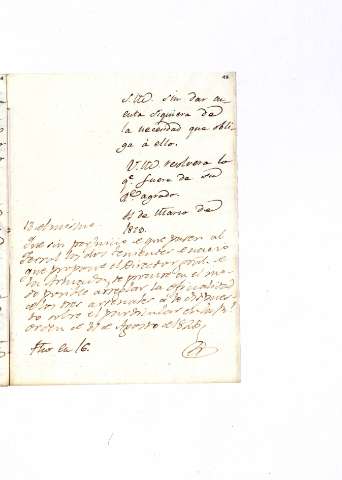 S.M. sin dar cu-
enta siquiera de
la necesidad que obli-
ga á ello.
V.M. resolvera lo
q.e fuere de su
R.l agrado.
4 de Marzo de
1830.
13 del mismo.
que sin perjuicio de que pasen al
Ferrol los dos Tenientes de navio
que propone el Director gral. se
en el mo-
do pronto de arreglar la oficialidad
de los tres Arsenales á lo dispues-
to sobre el particular en la R.l
orden de 31 de Agosto de 1826.
fho en 16.